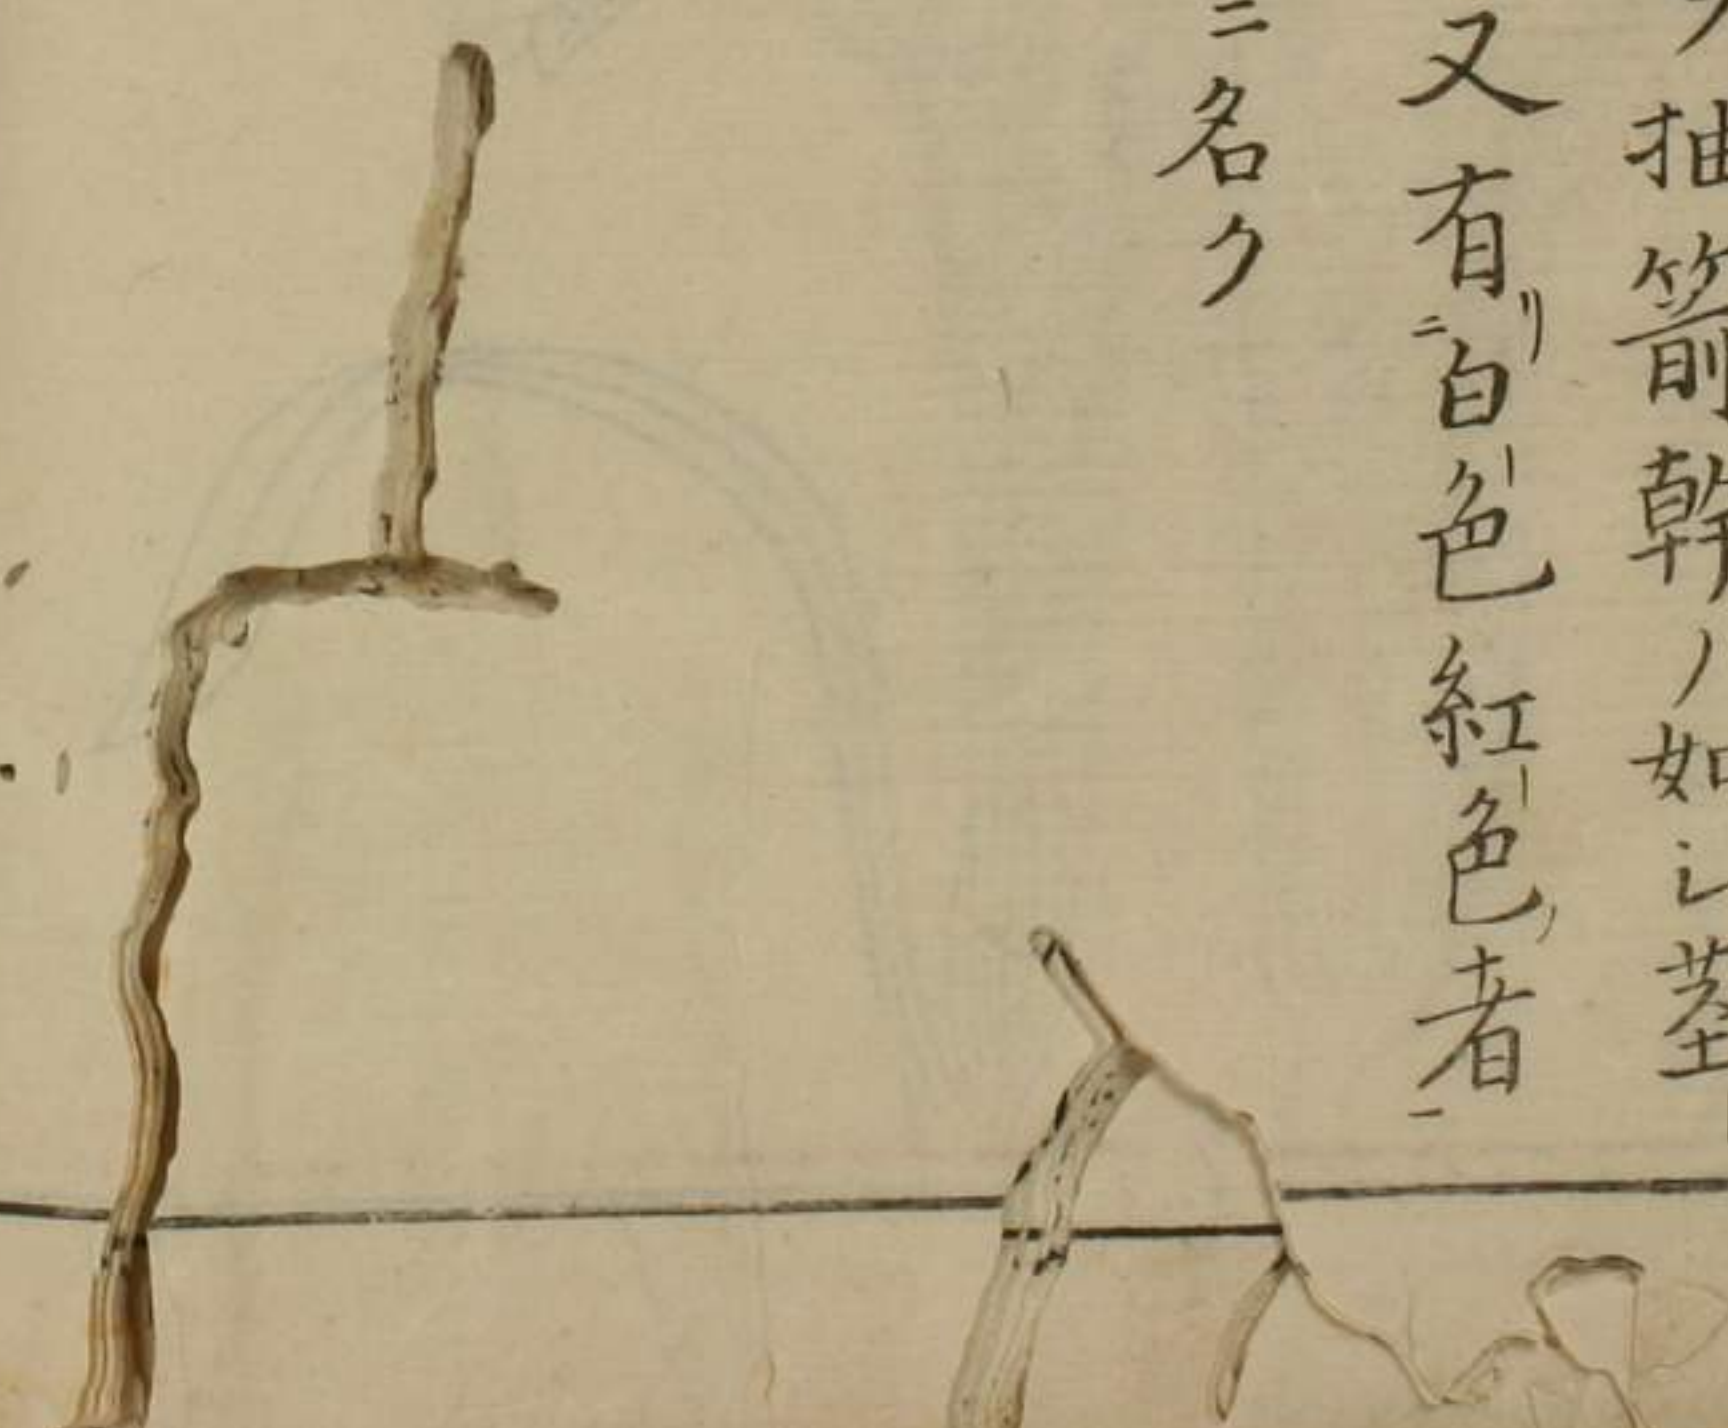 抽箭幹ノ如シ茎
又有リ二白色紅色ノ者一
ニ名ク